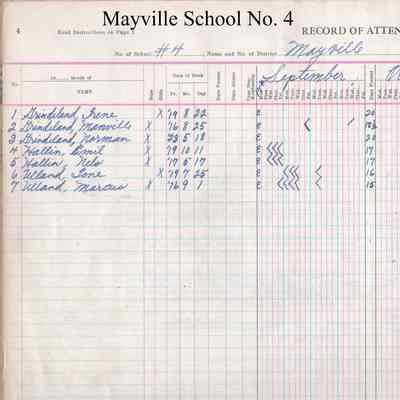 Mayville School No. 4
4 Read Instructions on Page 1 RECORD OF ATTEN
No. of School #4 Name and No. of District Mayville
Month of Date of Birth September
No. NAME Boys Girls Yr. Mo. Day Days Present Days Absent
1 Grindeland, Irene X '19 8 22 E 20
2 Grindeland, Manville X '16 8 25 E
3 Grindeland, Norman X 5 18 E 20
4 Hallin, Emil X '19 10 11 E 17
5 Hallin, Nels X '17 5 17 E 17
6 Ulland, Ione X '19 7 25 E 16
7 Ulland, Marcus X '16 9 1 E 15